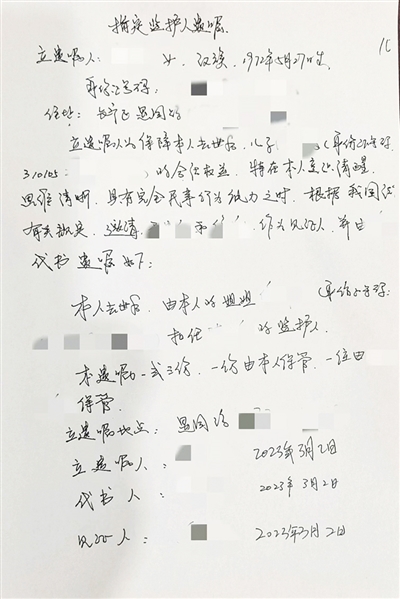 指定监护人遗嘱
立遗嘱人： 女，汉族，1972年5月27日生，
身份证号码：
住址：长宁区 恩园路
立遗嘱人为保障本人去世后，儿子 （身份证号码：
310105 ）的合法权益，特在本人意识清醒、
思维清晰，具有完全民事行为能力之时，根据我国法
有关规定，邀请 和 作为见证人，并由
代书遗嘱如下：
本人去世后，由本人的姐姐 （身份证号码：
担任 的监护人。
本遗嘱一式三份，一份由本人保管，一位由
保管。
立遗嘱地点：恩园路
立遗嘱人： 2023年3月2日
代书人： 2023年3月2日
见证人： 2023年3月2日